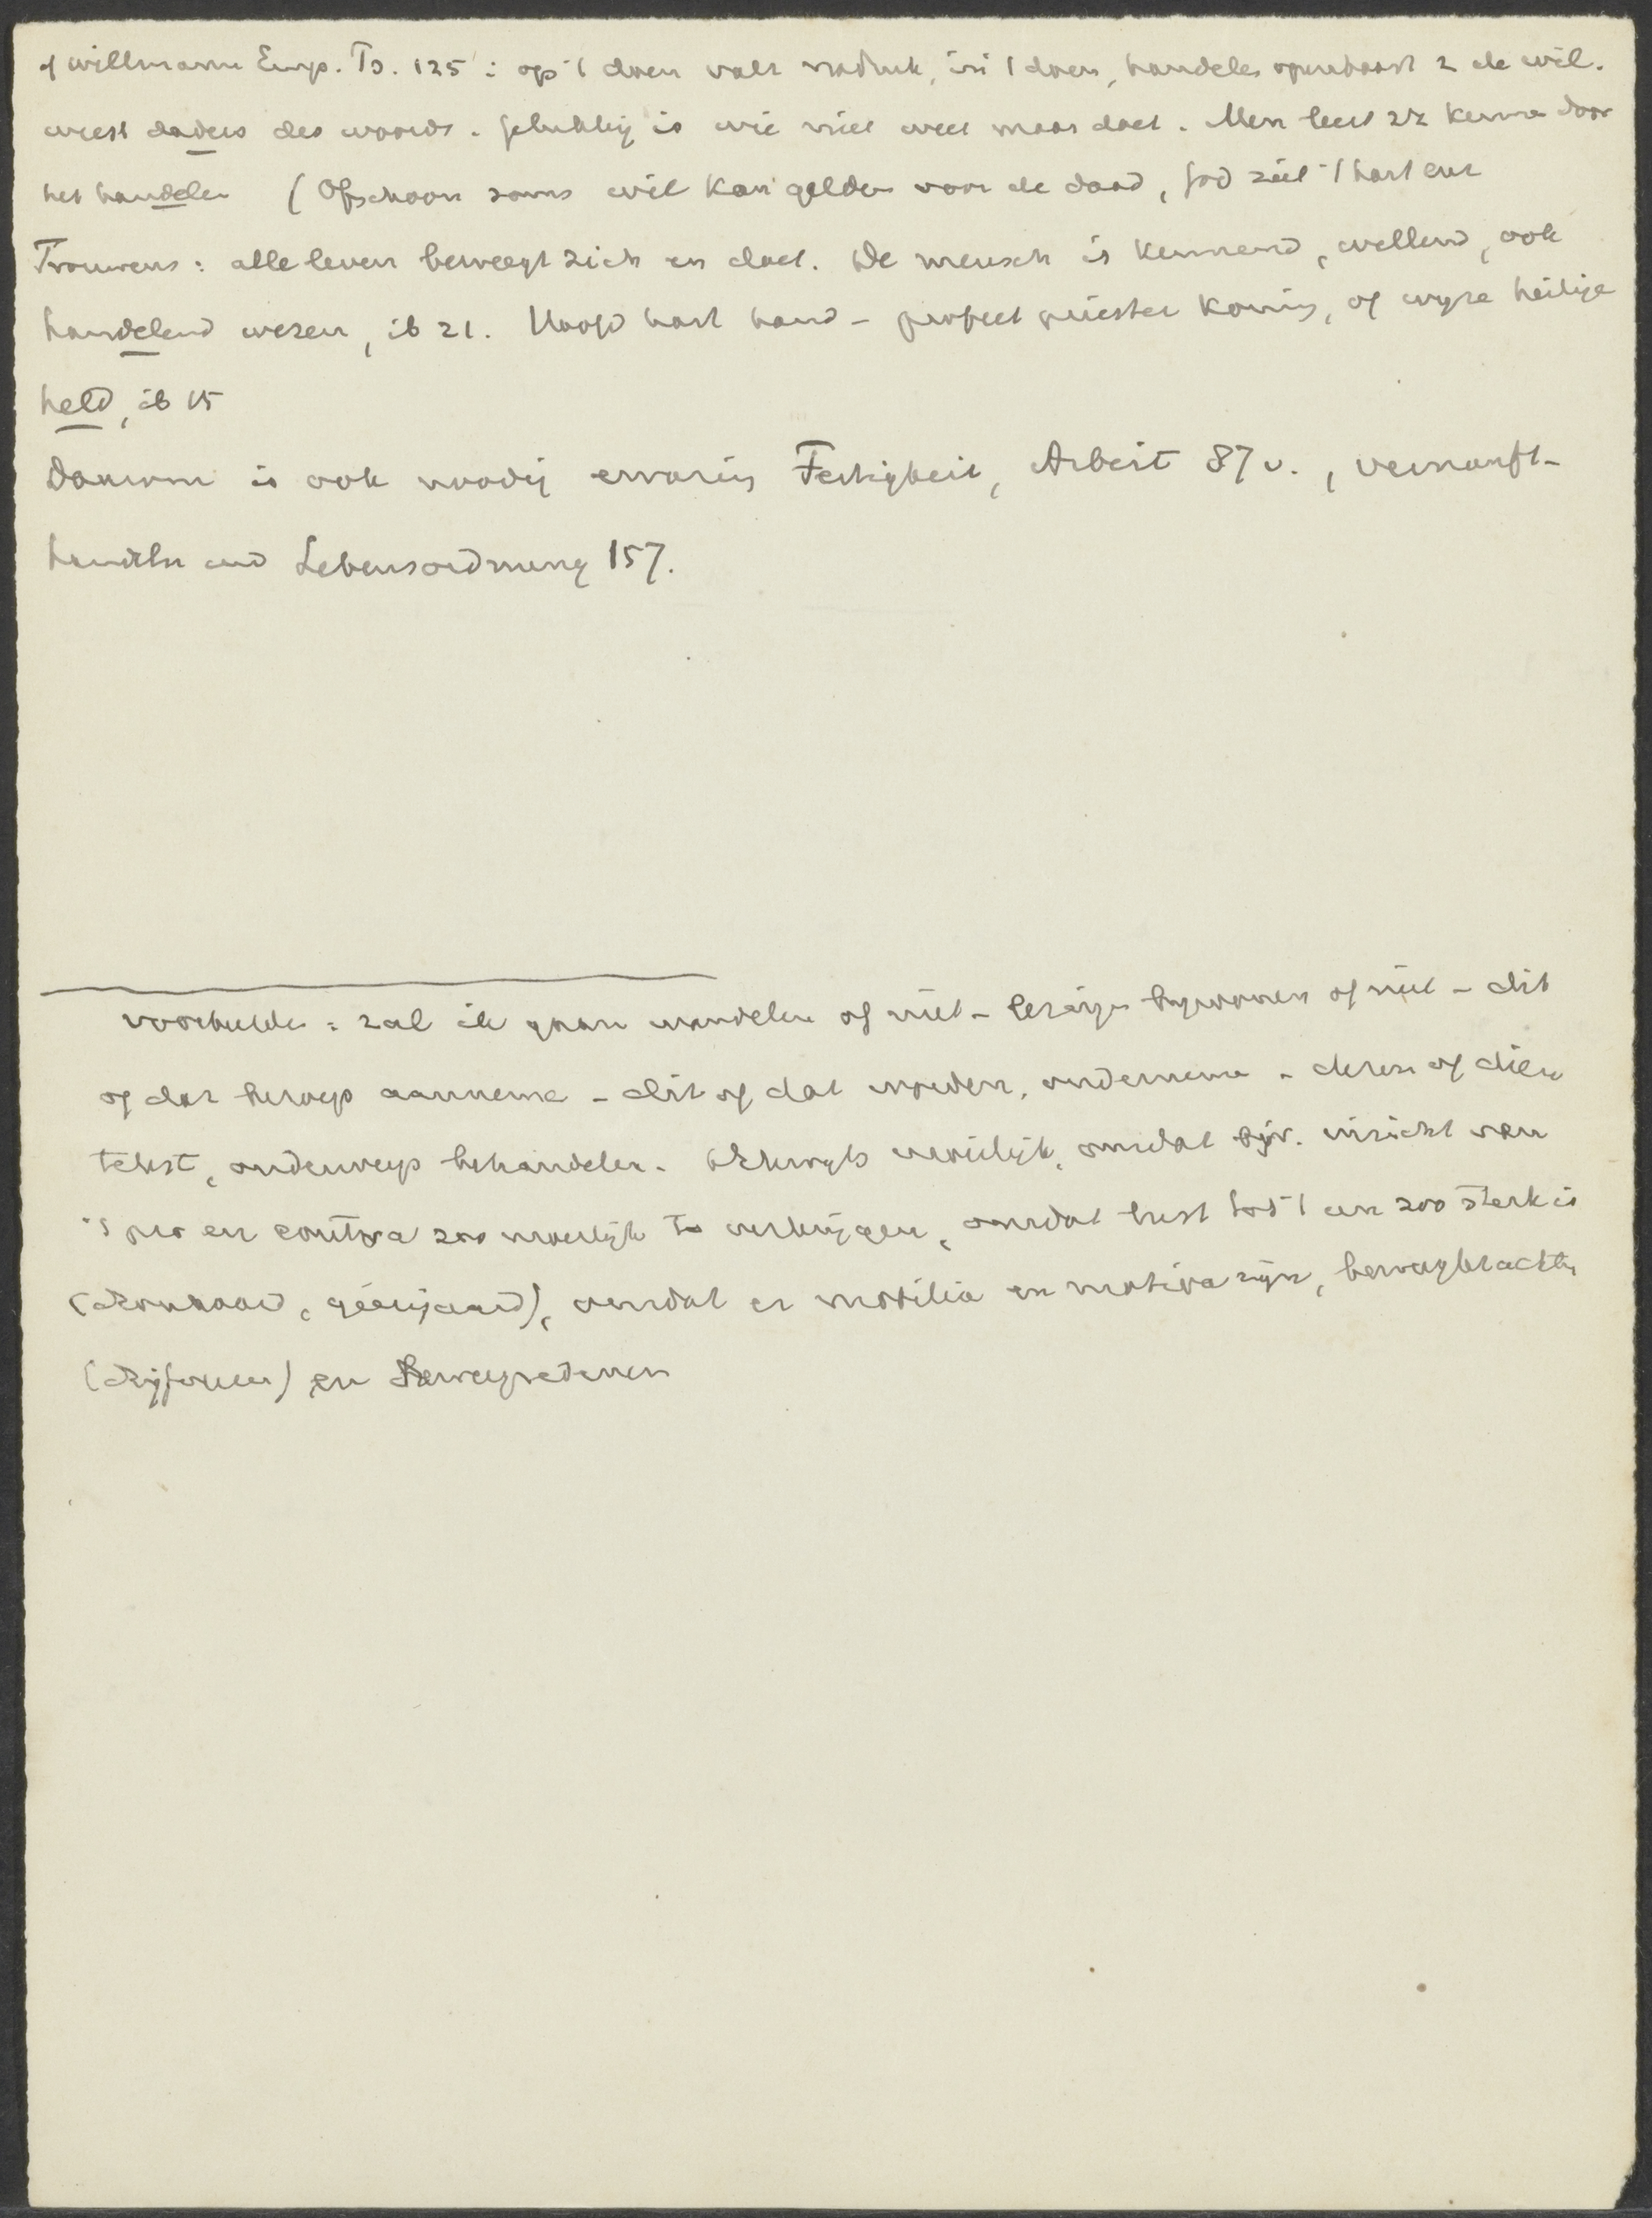 cf Willmann Emp. Ps. 125 : op 't doen valt nadruk, in 't doen, handelen openbaart z de wil.
weest daders des woords. gelukkig is wie niet weet maar doet. Men leert zz kennen door
het handelen (Ofschoon soms wil kan gelden voor de daad, God ziet 't hart enz
Trouwens : alle leven beweegt zich en doet. De mensch is kennend, willend, ook
handelend wezen, ib 21. Hoofd hart hand – profeet priester koning, of wyze heilige
held, ib 15
Daarom is ook noodig ervaring Fertigkeit, Arbeit 87 v. , vernunft-
handeln und Lebensordnung 157.
voorbeelden : zal ik gaan wandelen of niet – lezingen bywonen of niet – dit
of dat beroep aannemen – dit of dat worden, ondernemen – dezen of dien
tekst, onderwerp behandelen. Dikwyls moeilijk, omdat bijv. inzicht van
't pro en contra zoo moeilijk te verkrijgen, omdat lust tot 't een zoo sterk is
(dronkaard, gierigaard), omdat er mobilia en motiva zijn, beweegkrachten
(drijfveren) en Beweegredenen